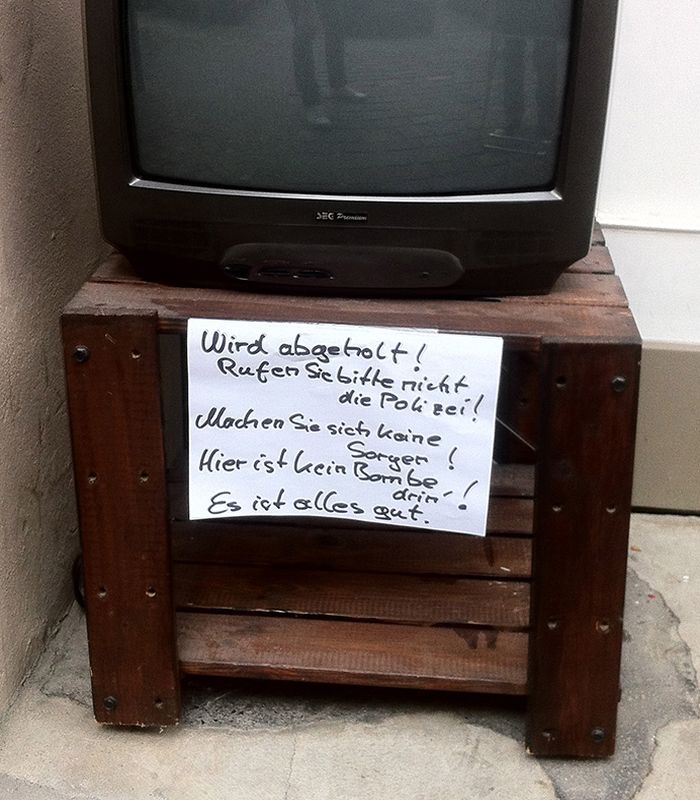 SEG Premium
Wird abgeholt!
Rufen Sie bitte nicht
die Polizei!
Machen Sie sich keine
Sorgen!
Hier ist kein Bombe
drin!
Es ist alles gut.